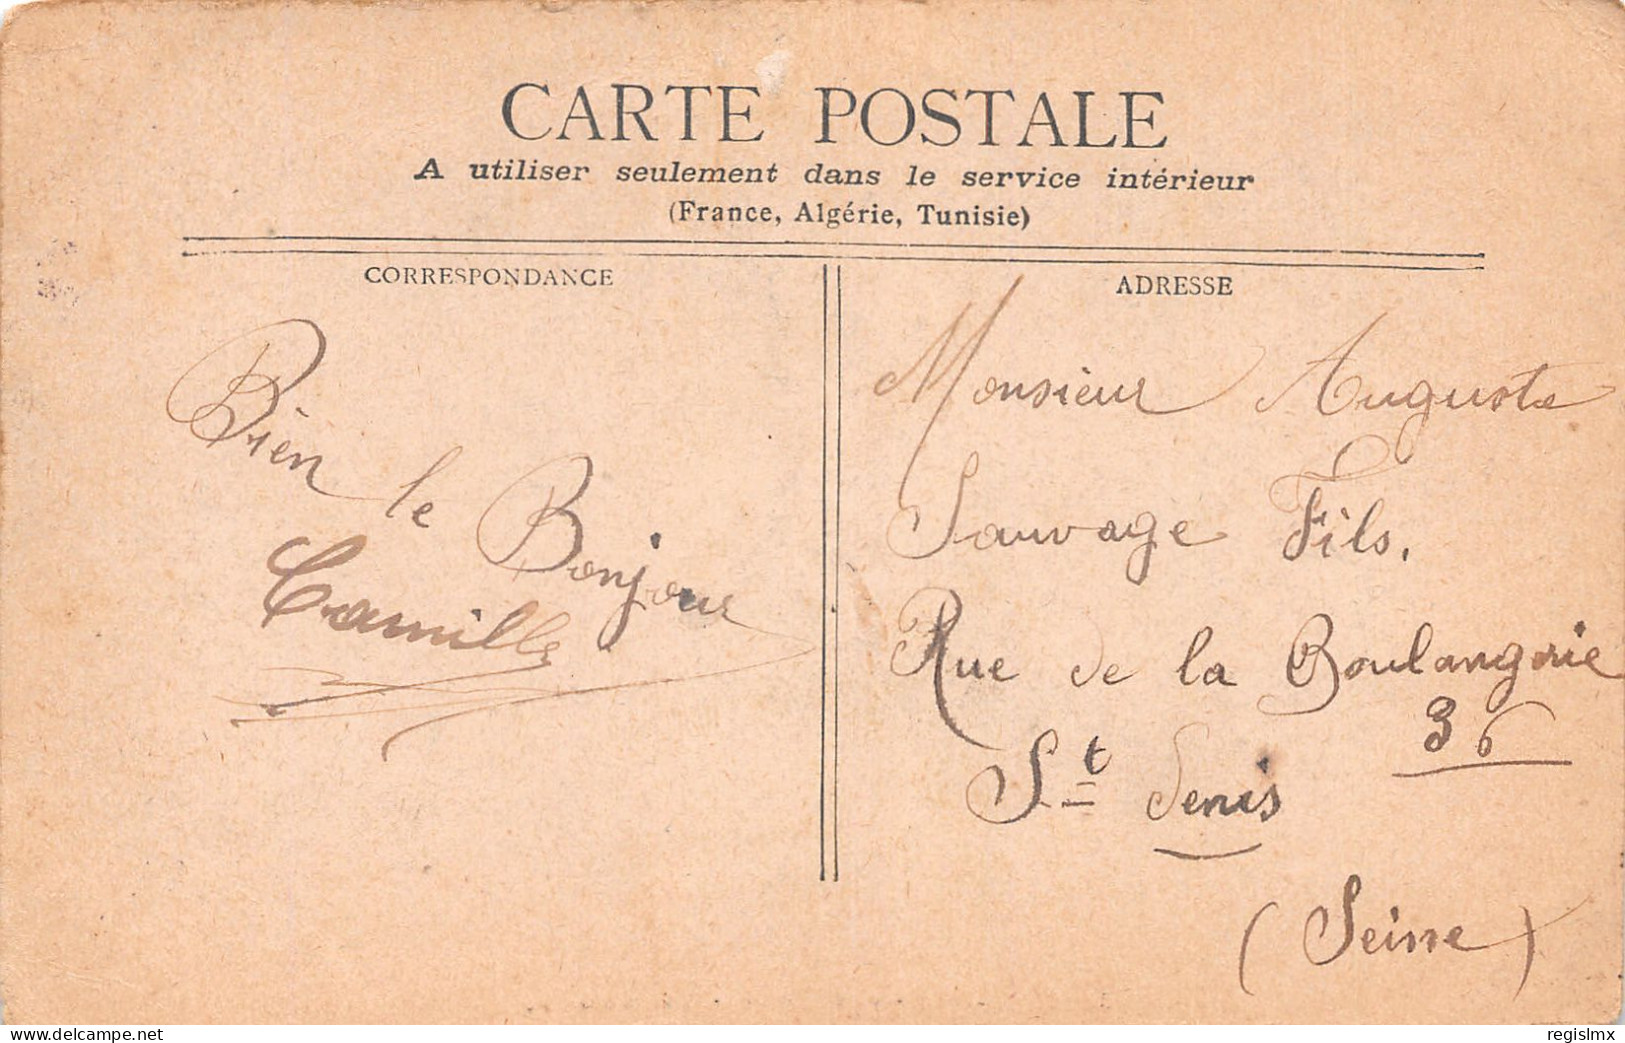 CARTE POSTALE
A utiliser seulement dans le service intérieur
(France, Algérie, Tunisie)
CORRESPONDANCE
Bien le Bonjour
Camille
ADRESSE
Monsieur Auguste
Sauvage Fils.
Rue de la Boulangerie
36
St Denis
(Seine)
delcampe.net
regislmx